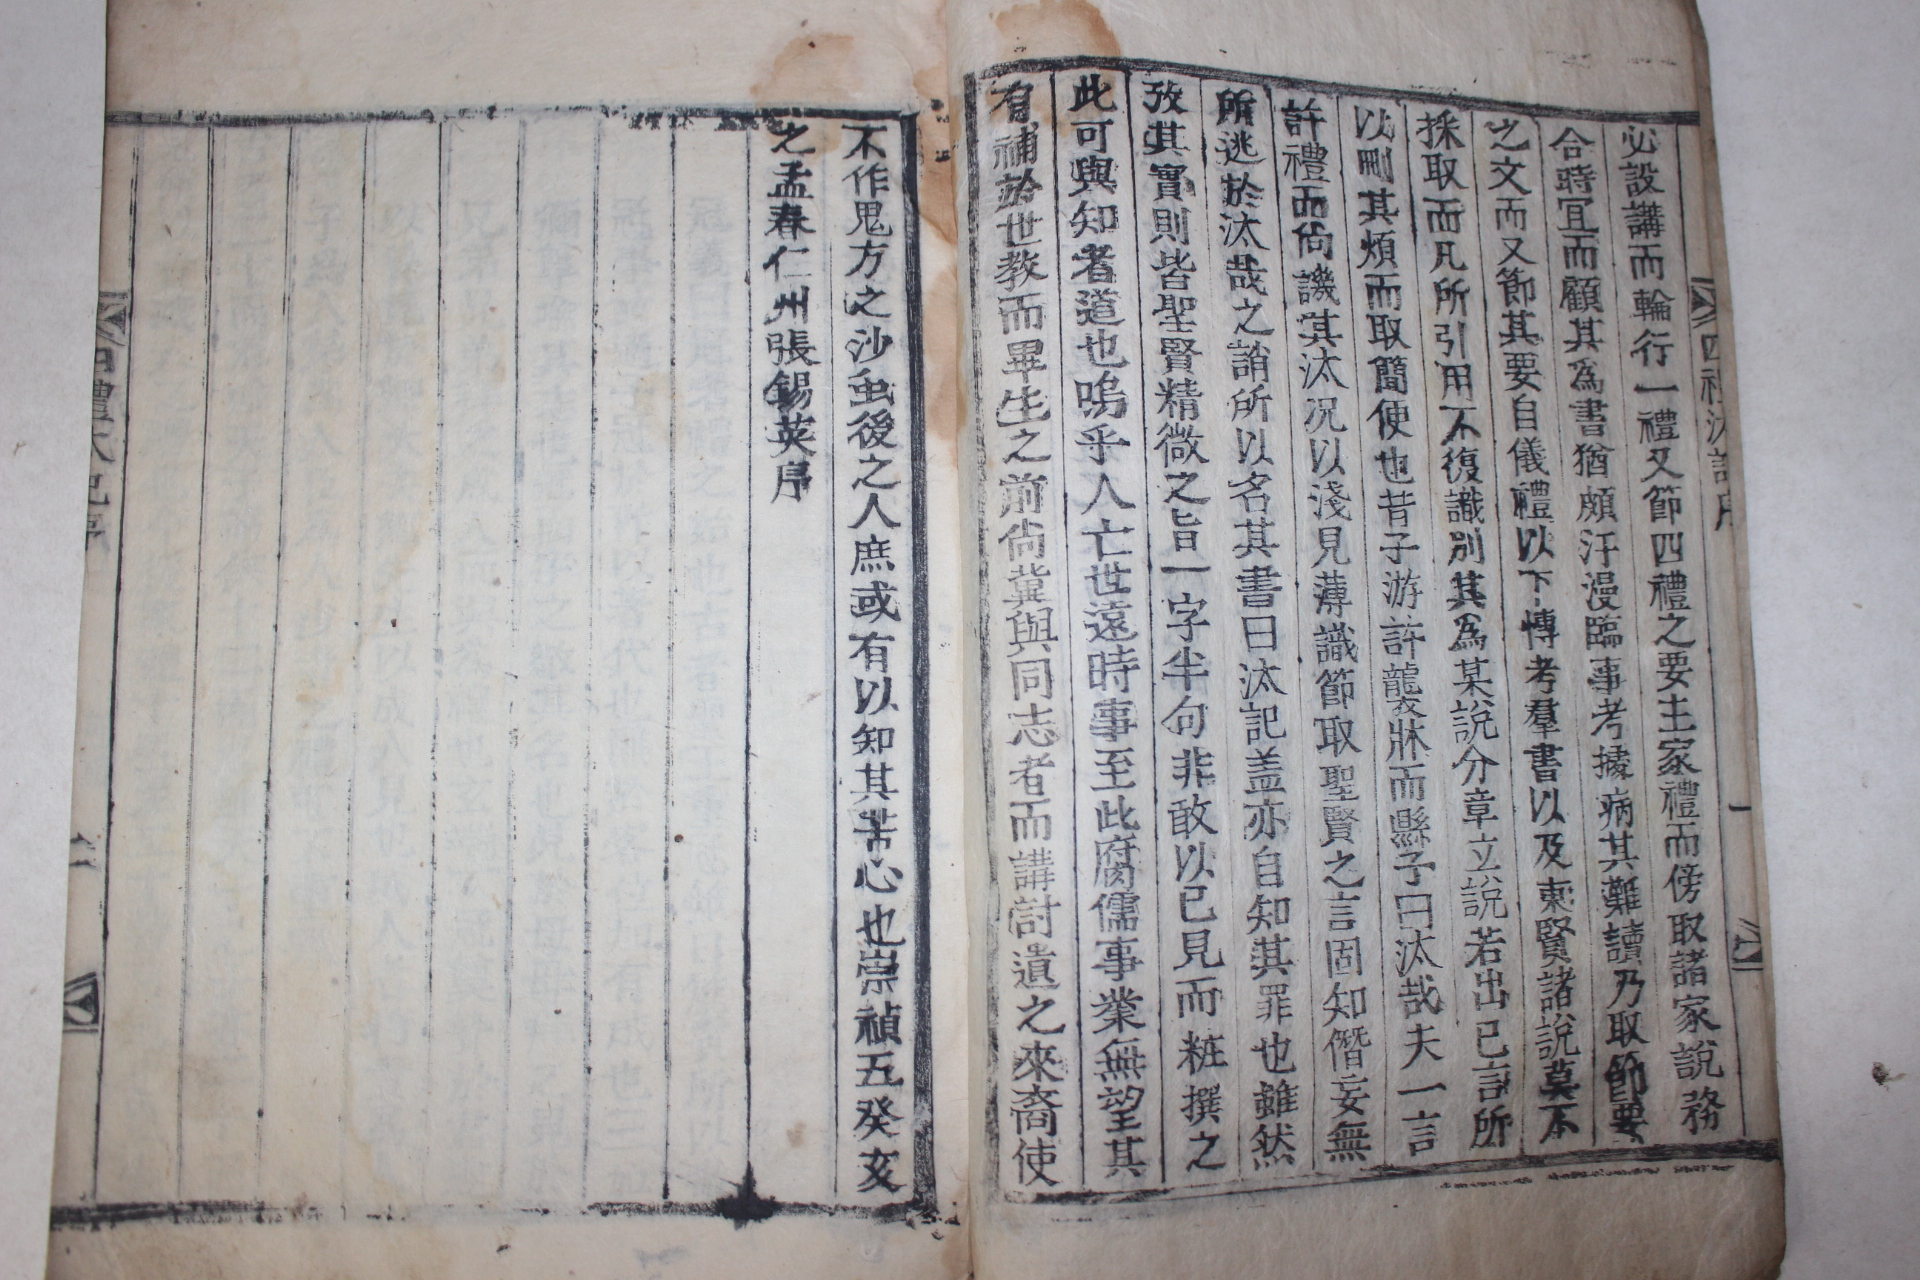 四禮汰記序
一
必設講而輪行一禮又節四禮之要主家禮而傍取諸家說務
合時冝而顧其為書猶頗汗漫臨事考據病其難讀乃取節要
之文而又節其要自儀禮以下慱考羣書以及東賢諸說莫不
採取而凡所引用不復識別其為某說分章立說若出已言所
以刪其煩而取簡便也昔子游許襲牀而縣子曰汰哉夫一言
許禮而尙譏其汰况以淺見薄識節取聖賢之言固知僭妄無
所逃於汰哉之誚所以名其書曰汰記盖亦自知其罪也雖然
攷其實則皆聖賢精微之旨一字半句非敢以已見而粧撰之
此可與知者道也嗚乎人亡世遠時事至此腐儒事業無望其
有補於世教而畢生之前尙冀與同志者而講討遺之來裔使
不作鬼方之沙虫後之人庶或有以知其苦心也崇禎五癸亥
之孟春仁州張錫英序
四禮汰記序
二